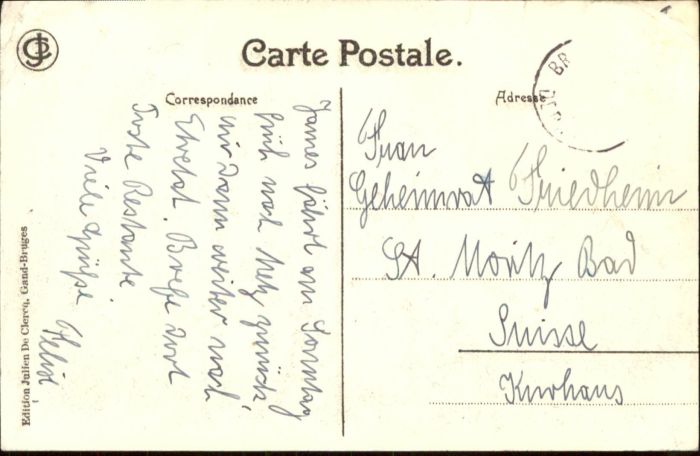 Carte Postale.
Correspondance
Adresse
James fährt am Sonntag
früh nach Metz zurück
wir dann weiter nach
Etretat. Briefe dort
Poste Restante
Viele Grüße
Felix
Frau
Geheimrat Friedheim
St. Moritz Bad
Suisse
Kurhaus
Edition Julien De Clercq, Gand-Bruges
BR